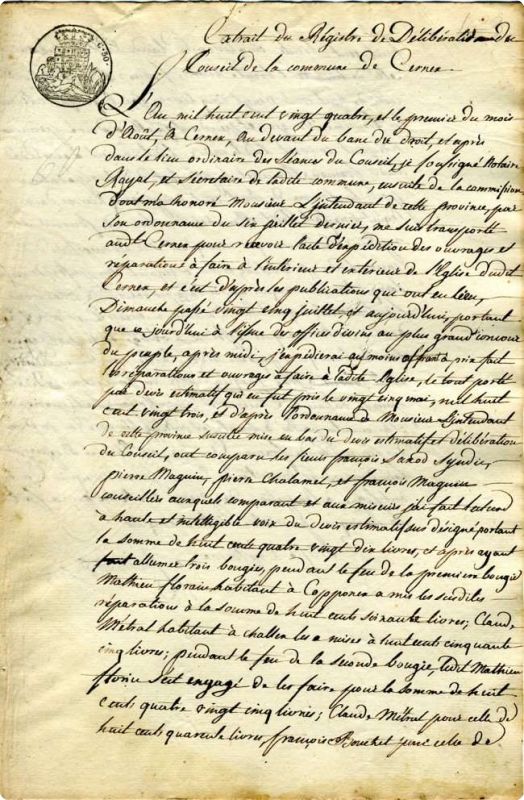 Extrait du Régistre de Délibération du
Conseil de la commune de Cernex
C. 50.
L'An mil huit cent vingt quatre, et le premier du mois
d'Août, à Cernex, au devant du banc du droit, et après
dans le lieu ordinaire des Séances du Conseil, je soussigné Notaire
Royal, et Sécrétaire de ladite commune, ensuite de la commission
dont m'a honoré Monsieur L'intendant de cette province, par
son ordonnance du six juillet dernier, me suis transporté
audt Cernex pour recevoir l'acte d'expédition des ouvrages et
réparations à faire à l'intérieur et exterieur de l'Eglise dudit
Cernex, et c'est d'après les publications qui ont eu lieu,
Dimanche passé vingt cinq juillet, et aujourd'hui, portant
que ce jourd'hui à l'issue des offices divins au plus grand concours
du peuple, après midi, j'expédierai au moins offrant à prix fait
les réparations et ouvrages à faire à ladite Eglise, le tout porté
par devis estimatif qui en fut pris le vingt cinq mai, mil huit
cent vingt trois, et d'après l'ordonnance de Monsieur L'intendant
de cette province susdite mise en bas du devis estimatif et délibération
du Conseil, ont comparu les sieurs françois Sarod Syndic,
pierre Maguin, pierre Chalamel, et françois Maguin
conseillers auxquels comparant et aux miseurs j'ai fait lecture
à haute et intelligible voix du devis estimatif sus désigné portant
la somme de huit cents quatre vingt dix livres, et après ayant
fait allumer trois bougies, pendant le feu de la première bougie
Mathieu florin habitant à Copponex a mis les susdites
réparations à la somme de huit cents soixante livres; Claude
Métral habitant à challex les a mises à huit cents cinquante
cinq livres; pendant le feu de la seconde bougie, ledit Mathieu
florin s'est engagé de les faire pour la somme de huit
cents quatre vingt cinq livres; Claude Métral pour celle de
huit cents quarante livres, françois Bouchet pour celle de